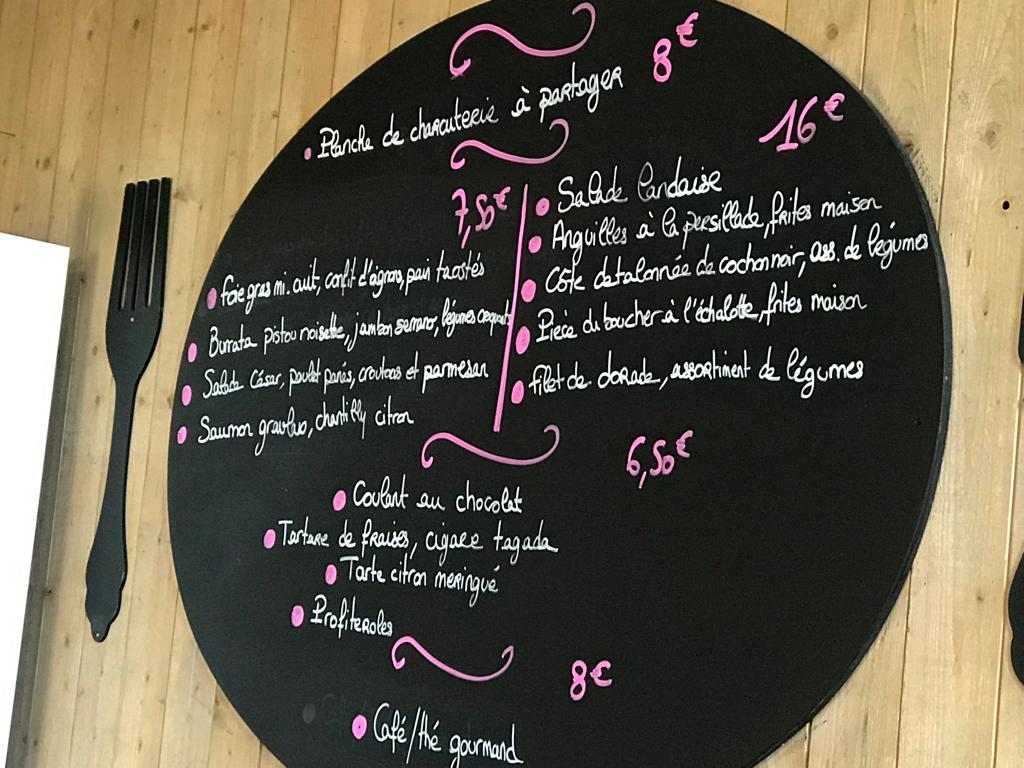 8€
Planche de charcuterie à partager
16€
7,50€
Foie gras mi.cuit, confit d'oignons, pain toastés
Burrata pistou noisette, jambon serrano, légumes croquants
Salade César, poulet panés, croutons et parmesan
Saumon gravlax, chantilly citron
Salade landaise
Anguilles à la persillade, frites maison
Côte de talonnée de cochon noir, ass. de légumes
Pièce du boucher à l'échalotte, frites maison
Filet de dorade, assortiment de légumes
6,50€
Coulant au chocolat
Tartare de fraises, cigare tagada
Tarte citron meringué
Profiteroles
8€
Café/thé gourmand